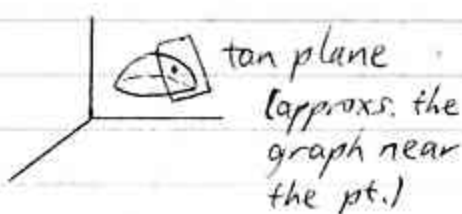 tan plane
(approxs. the
graph near
the pt.)